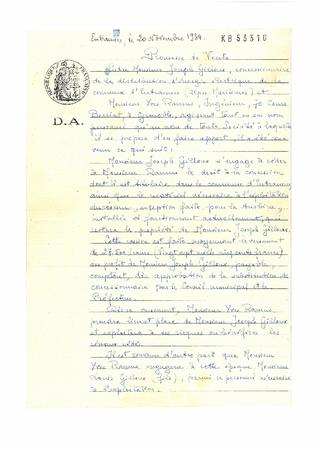 Entraunes, le 20 Novembre 1934. KB 53310
Promesse de Vente
Entre Monsieur Joseph Gilloux, concessionnaire
de la distribution d'énergie électrique de la
commune d'Entraunes, Alpes-Maritimes, et
Monsieur Yves Ramus, Ingénieur, 70 Cours
Berriat, à Grenoble, agissant tant en son nom
personnel qu'au nom de toute Société à laquelle
il se propose d'en faire apport, il a été con-
venu ce qui suit:
D.A.
Monsieur Joseph Gilloux s'engage à céder
à Monsieur Ramus le droit à la concession
dont il est titulaire dans la commune d'Entraunes
ainsi que le matériel nécessaire à l'exploitation
du réseau, exception faite pour la turbine,
installée et fonctionnant actuellement, qui
restera la propriété de Monsieur Joseph Gilloux.
Cette cession est faite moyennant versement
de 27.500 francs (Vingt sept mille cinq cents francs)
au profit de Monsieur Joseph Gilloux, payable
comptant, dès approbation de la substitution de
concessionnaire par le Conseil municipal et la
Préfecture.
Dès ce moment, Monsieur Yves Ramus,
prendra lieu et place de Monsieur Joseph Gilloux
et exploitera à ses risques et bénéfices les
réseaux cédés.
Il est convenu d'autre part que Monsieur
Yves Ramus engagera à cette époque Monsieur
Louis Gilloux (fils), parmi le personnel nécessaire
à l'exploitation.